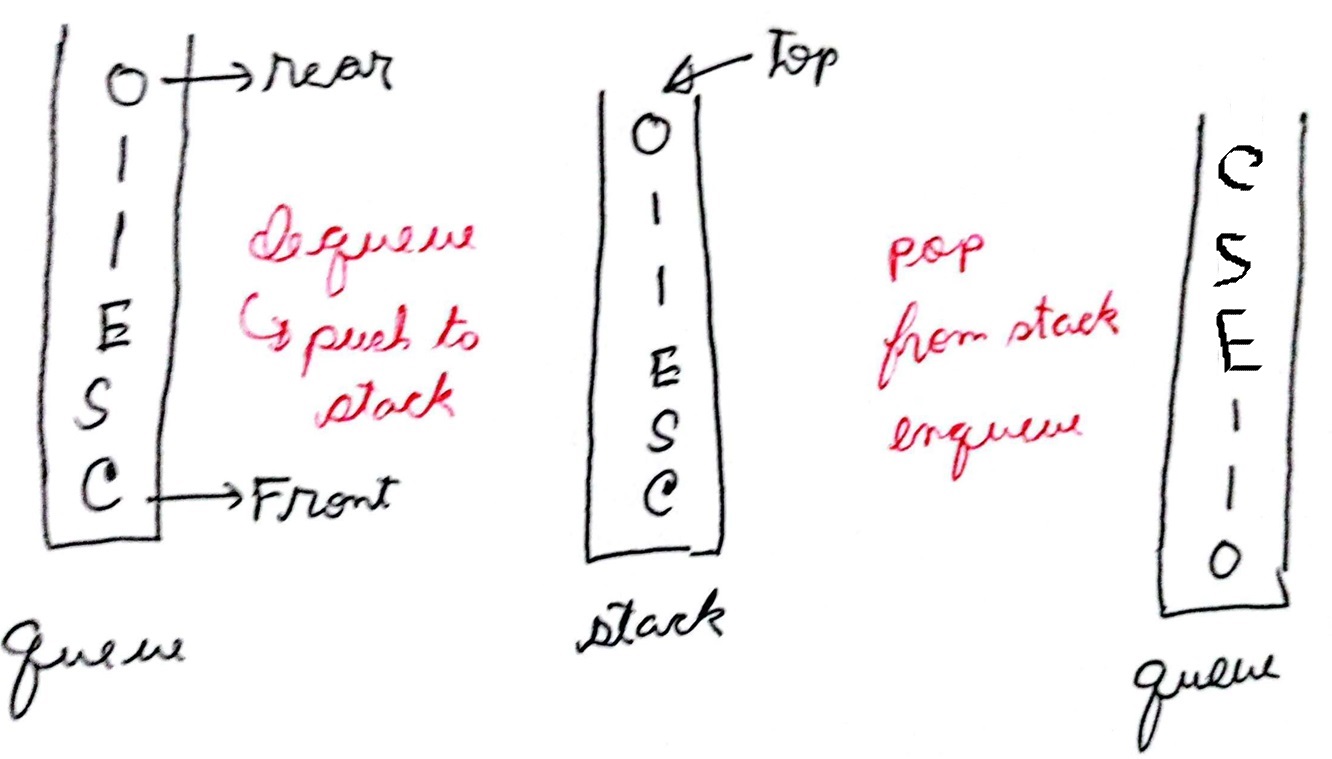 O → rear
I
I
E
S
C → Front
queue
Dequeue
↳ push to
stack
Top
O
I
I
E
S
C
stack
pop
from stack
enqueue
C
S
E
I
I
O
queue